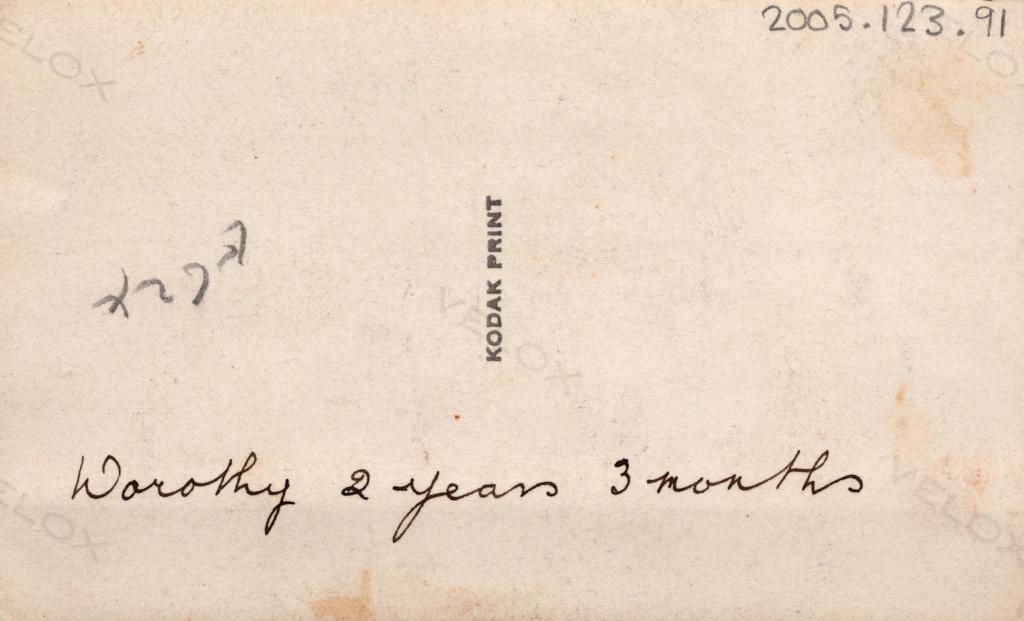 2005.123.91
VELOX
VELOX
KODAK PRINT
VELOX
Dorothy 2 years 3 months
VELOX
VELOX